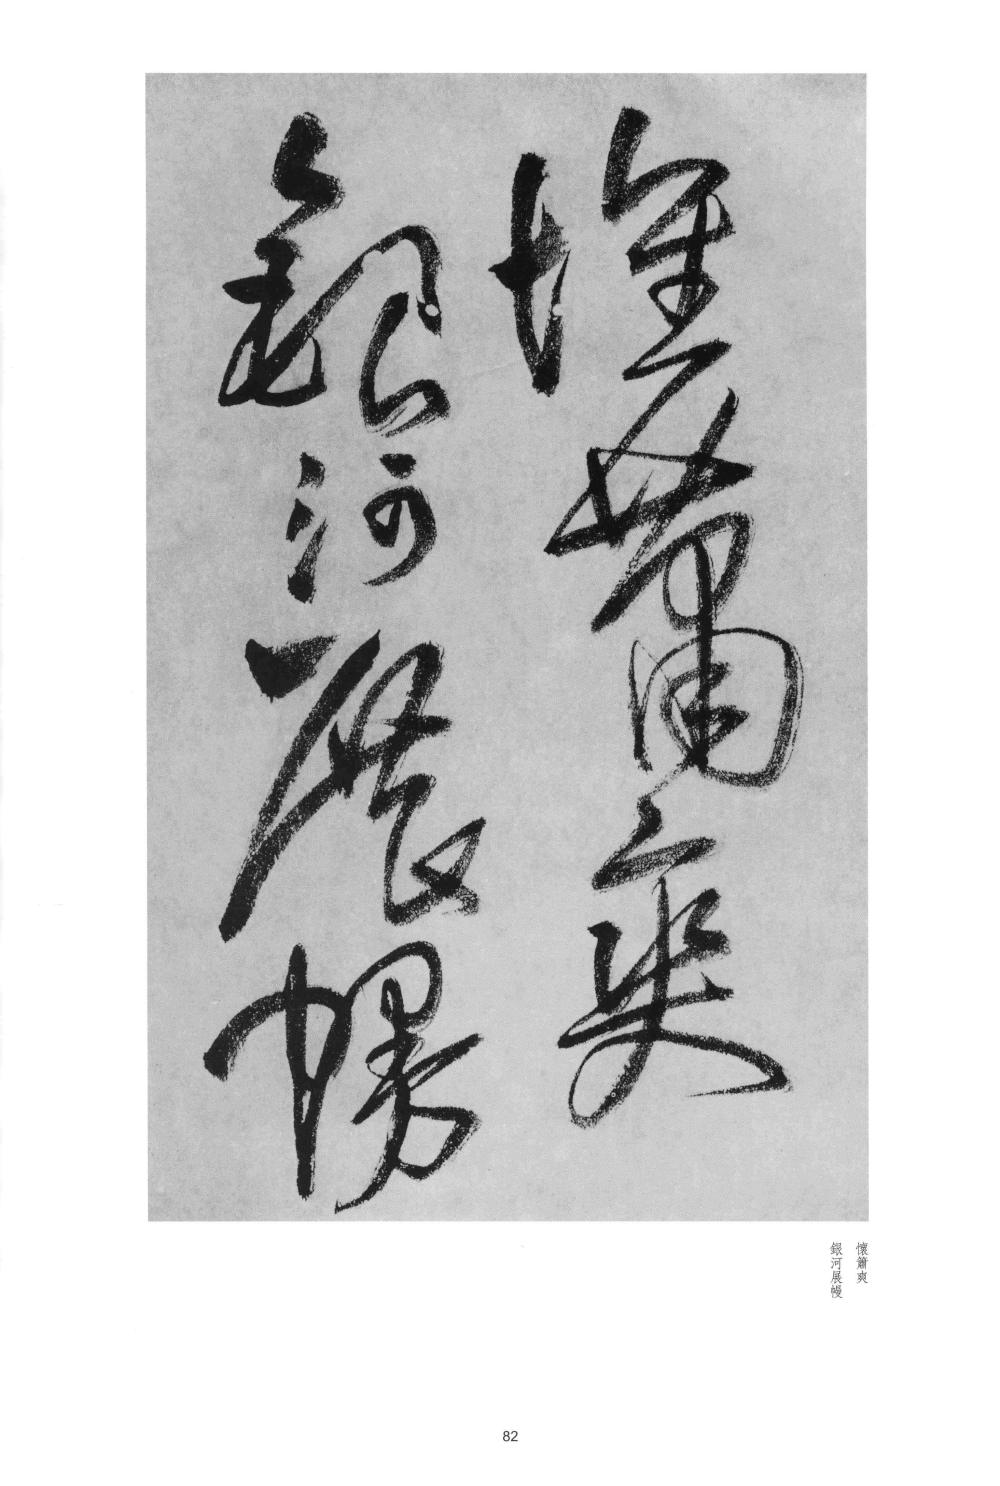 懷簫爽
銀河展幔
懷簫爽
銀河展幔
82